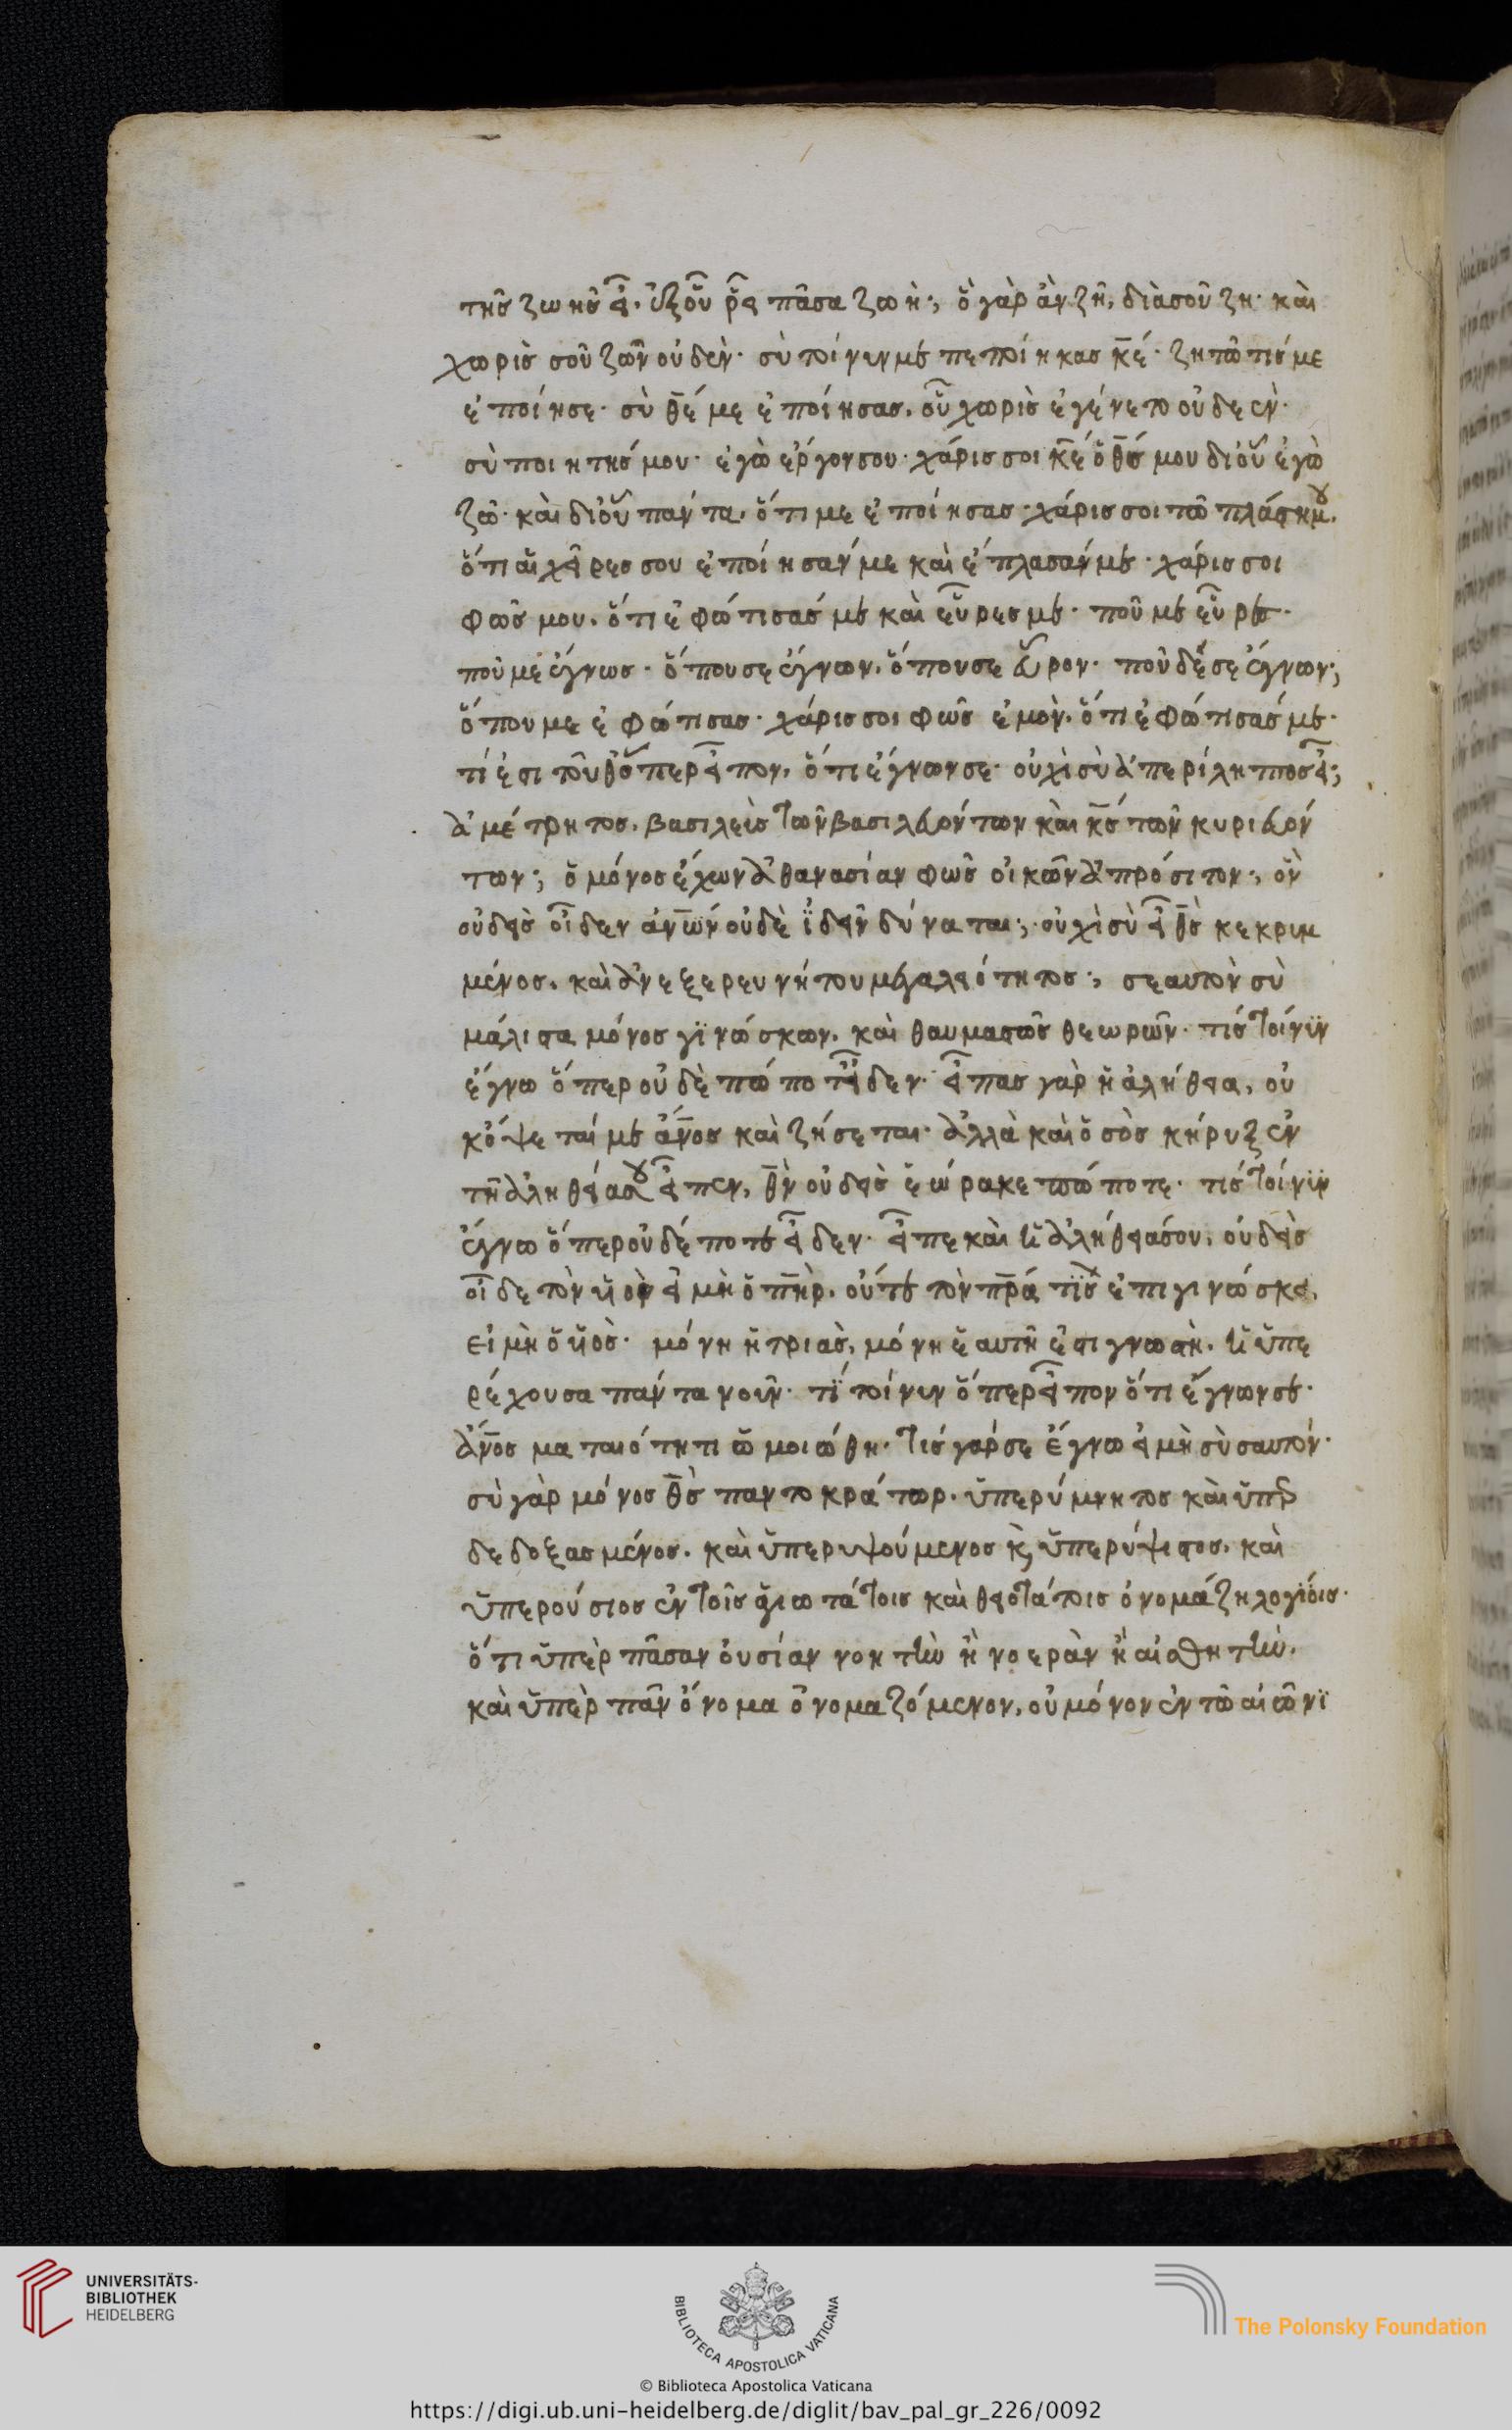 τῆς ζωῆς εἶ. ἐξ οὗ ῥεῖ πᾶσα ζωὴ; ὃ γὰρ ἂν ζῇ, διὰ σοῦ ζῆ· καὶ
χωρὶς σοῦ ζῶν οὐδὲν· σὺ τοίνυν με πεποίηκας κ̅ε· ζητῶ τίς με
ἐποίησε· σὺ θ̅ε με ἐποίησας, οὗ χωρὶς ἐγένετο οὐδὲ ἓν·
σὺ ποιητής μου· ἐγὼ ἔργον σου· χάρις σοι κ̅ε ὁ θ̅ς μου δι οὗ ἐγὼ
ζῶ· καὶ δι οὗ πάντα, ὅτι με ἐποίησας· χάρις σοι τῶ πλάστη μου,
ὅτι αἱ χεῖρες σου ἐποίησάν με καὶ ἔπλασάν με· χάρις σοι
φῶς μου, ὅτι ἐφώτισάς με καὶ εὗρες με· ποῦ με εὗρες·
ποῦ με ἔγνως· ὅπου σε ἔγνων, ὅπου σε εὗρον· ποῦ δέ σε ἔγνων;
ὅπου με ἐφώτισας· χάρις σοι φῶς ἐμὸν, ὅτι ἐφώτισάς με·
τί ἐστι τοῦθ ὅπερ εἶπον, ὅτι ἔγνων σε· οὐχὶ σὺ ἀπερίληπτος εἶ;
ἀμέτρητος, βασιλεὺς τῶν βασιλευόντων καὶ κ̅ς τῶν κυριευόν
των; ὁ μόνος ἔχων ἀθανασίαν φῶς οἰκῶν ἀπρόσιτον; ὃν
οὐδεὶς οἶδεν ἀν̅ων οὐδὲ ἰδεῖν δύναται; οὐχὶ σὺ εἶ θ̅ς κεκριμ
μένος, καὶ ἀνεξερευνήτου μεγαλειότητος; σεαυτὸν σὺ
μάλιστα μόνος γϊνώσκων, καὶ θαυμαστῶς θεωρῶν· τίς τοίνϋν
ἔγνω ὅπερ οὐδεπώποτε εἶδεν· εἶπας γὰρ ἡ ἀλήθεια, οὐ
κόψεταί με ἄν̅ος καὶ ζήσεται· ἀλλὰ καὶ ὁ σὸς κήρυξ ἐν
τῆ ἀληθεία σου εἶπεν, θ̅ν οὐδεὶς ἑώρακε πώποτε· τίς τοίνϋν
ἔγνω ὅπερ οὐδέποτε εἶδεν· εἶπε καὶ ἡ ἀλήθειά σου, οὐδεὶς
οἶδε τὸν υἱὸν εἰ μὴ ὁ π̅ηρ, οὔτε τὸν π̅ρα τϊς ἐπιγινώσκει,
εἰ μὴ ὁ υἱὸς· μόνη ἡ τριὰς, μόνη ἑαυτῆ ἐστι γνωστὴ, ἡ ὑπε
ρέχουσα πάντα νοῦν· τί τοίνυν ὅπερ εἶπον ὅτι ἔγνων σε·
ἄν̅ος ματαιότητι ὡμοιώθη· τίς γάρ σε ἔγνω εἰ μὴ σὺ σαυτόν·
σὺ γὰρ μόνος θ̅ς παντοκράτωρ· ὑπερύμνητος καὶ ὑπερ
δεδοξασμένος, καὶ ὑπερυψούμενος κ, ὑπερύψιστος, καὶ
ὑπερούσιος ἐν τοῖς ἁγιωτάτοις καὶ θειοτάτοις ὀνομάζη λογίοις·
ὅτι ὑπὲρ πᾶσαν οὐσίαν νοητὴν ἢ νοερὰν ἢ αἰσθητὴν,
καὶ ὑπὲρ πᾶν ὄνομα ὀνομαζόμενον, οὐ μόνον ἐν τῶ αἰῶνϊ
UNIVERSITÄTS-
BIBLIOTHEK
HEIDELBERG
BIBLIOTECA APOSTOLICA VATICANA
The Polonsky Foundation
© Biblioteca Apostolica Vaticana
https://digi.ub.uni-heidelberg.de/diglit/bav_pal_gr_226/0092